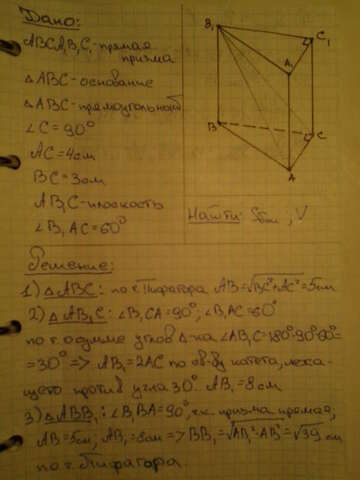 Дано:
ABCA₁B₁C₁-прямая
призма
△ABC-основание
△ABC-прямоугольный
∠C=90°
AC=4см
BC=3см
AB₁C-плоскость
∠B₁AC=60°
B₁
C₁
A₁
B
C
A
Найти: Sбок; V
Решение:
1) △ABC: по т. Пифагора AB=√BC²+AC²=5см
2) △AB₁C: ∠B₁CA=90°; ∠B₁AC=60°
по т. о сумме углов △-ка ∠AB₁C=180°-90°-60°=
=30° => AB₁=2AC по св-ву катета, лежа-
щего против угла 30°. AB₁=8см
3) △ABB₁: ∠B₁BA=90°, т.к. призма прямая,
AB=5см; AB₁=8см => BB₁=√AB₁²-AB²=√39 см
по т. Пифагора.